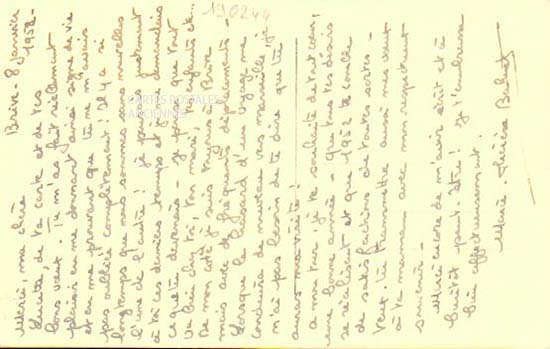 190244
Brive - 8 Janvier
1952 -
Merci, ma chère
Lucite, de ta carte et de tes
bons vœux. Tu m'as fait réellement
plaisir en me donnant ainsi signe de vie
et en me prouvant que tu ne m'avais
pas oubliée complètement! Il y a si
longtemps que nous sommes sans nouvelles
l'une de l'autre! Je pensais justement
à toi ces derniers temps et je me demandais
ce que tu devenais - Je pense que tout
va bien chez toi, ton mari, tes enfants etc...
De mon côté je suis toujours à Brive
mais avec de fréquents déplacements -
Lorsque le hasard d'un voyage me
conduira de nouveau vers Marseille, je
n'ai pas besoin de te dire que tu
auras ma visite!
À mon tour, je te souhaite de tout cœur,
une bonne année - que tous tes désirs
se réalisent et que 1952 te comble
de satisfactions de toutes sortes -
Veux-tu transmettre aussi mes vœux
à ta maman - avec mon respectueux
souvenir -
Merci encore de m'avoir écrit et à
bientôt peut-être! Je t'embrasse
bien affectueusement.
CARTES POSTALES
ANCIENNES